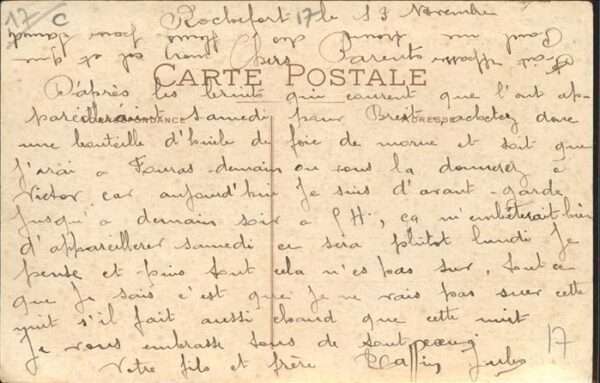 17 C
Rochefort 17 le 13 Novembre
Chers Parents
CARTE POSTALE
D'après les bruits qui courent que l'ont ap-
pareillerait samedi pour Brest achetez donc
CORRESPONDANCE ADRESSE
une bouteille d'huile de foie de morue et soit que
j'irai a Fouras demain ou vous la donnerez a
Victor car aujourd'hui Je suis d'avant-garde
jusqu'à demain soir a 9H, ça m'embeterait bien
d'appareiller samedi ce sera plutot lundi Je
pense et puis tout cela n'es pas sur, tout ce
que Je sais c'est que Je ne vais pas suer cette
nuit s'il fait aussi chaud que cette nuit
Je vous embrasse tous de tout cœur
Votre fils et frère Jules
17